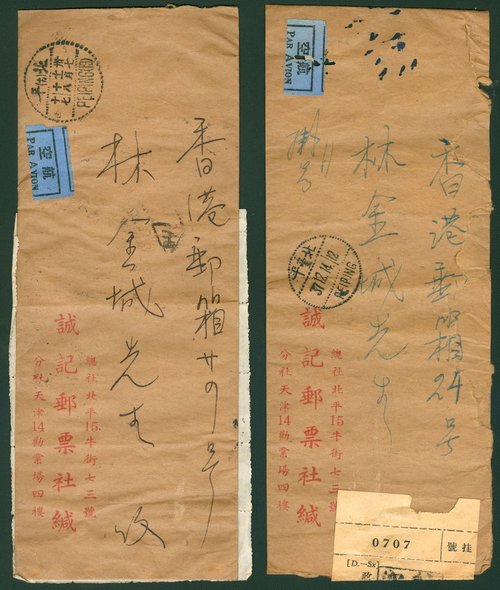 北平
PEIPING(10)
航空
PAR AVION
香港郵箱廿四号
林金城先生 收
總社北平15牛街七三號
誠記郵票社緘
分社天津14勸業場四樓
航空
PAR AVION
掛号
香港郵箱24号
林金城先生
北平
37.12.14.12
PEIPING
總社北平15牛街七三號
誠記郵票社緘
分社天津14勸業場四樓
0707
挂號
[D.—5x]